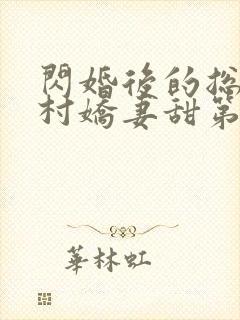 閃婚後的總
村嬌妻甜第
華林虹